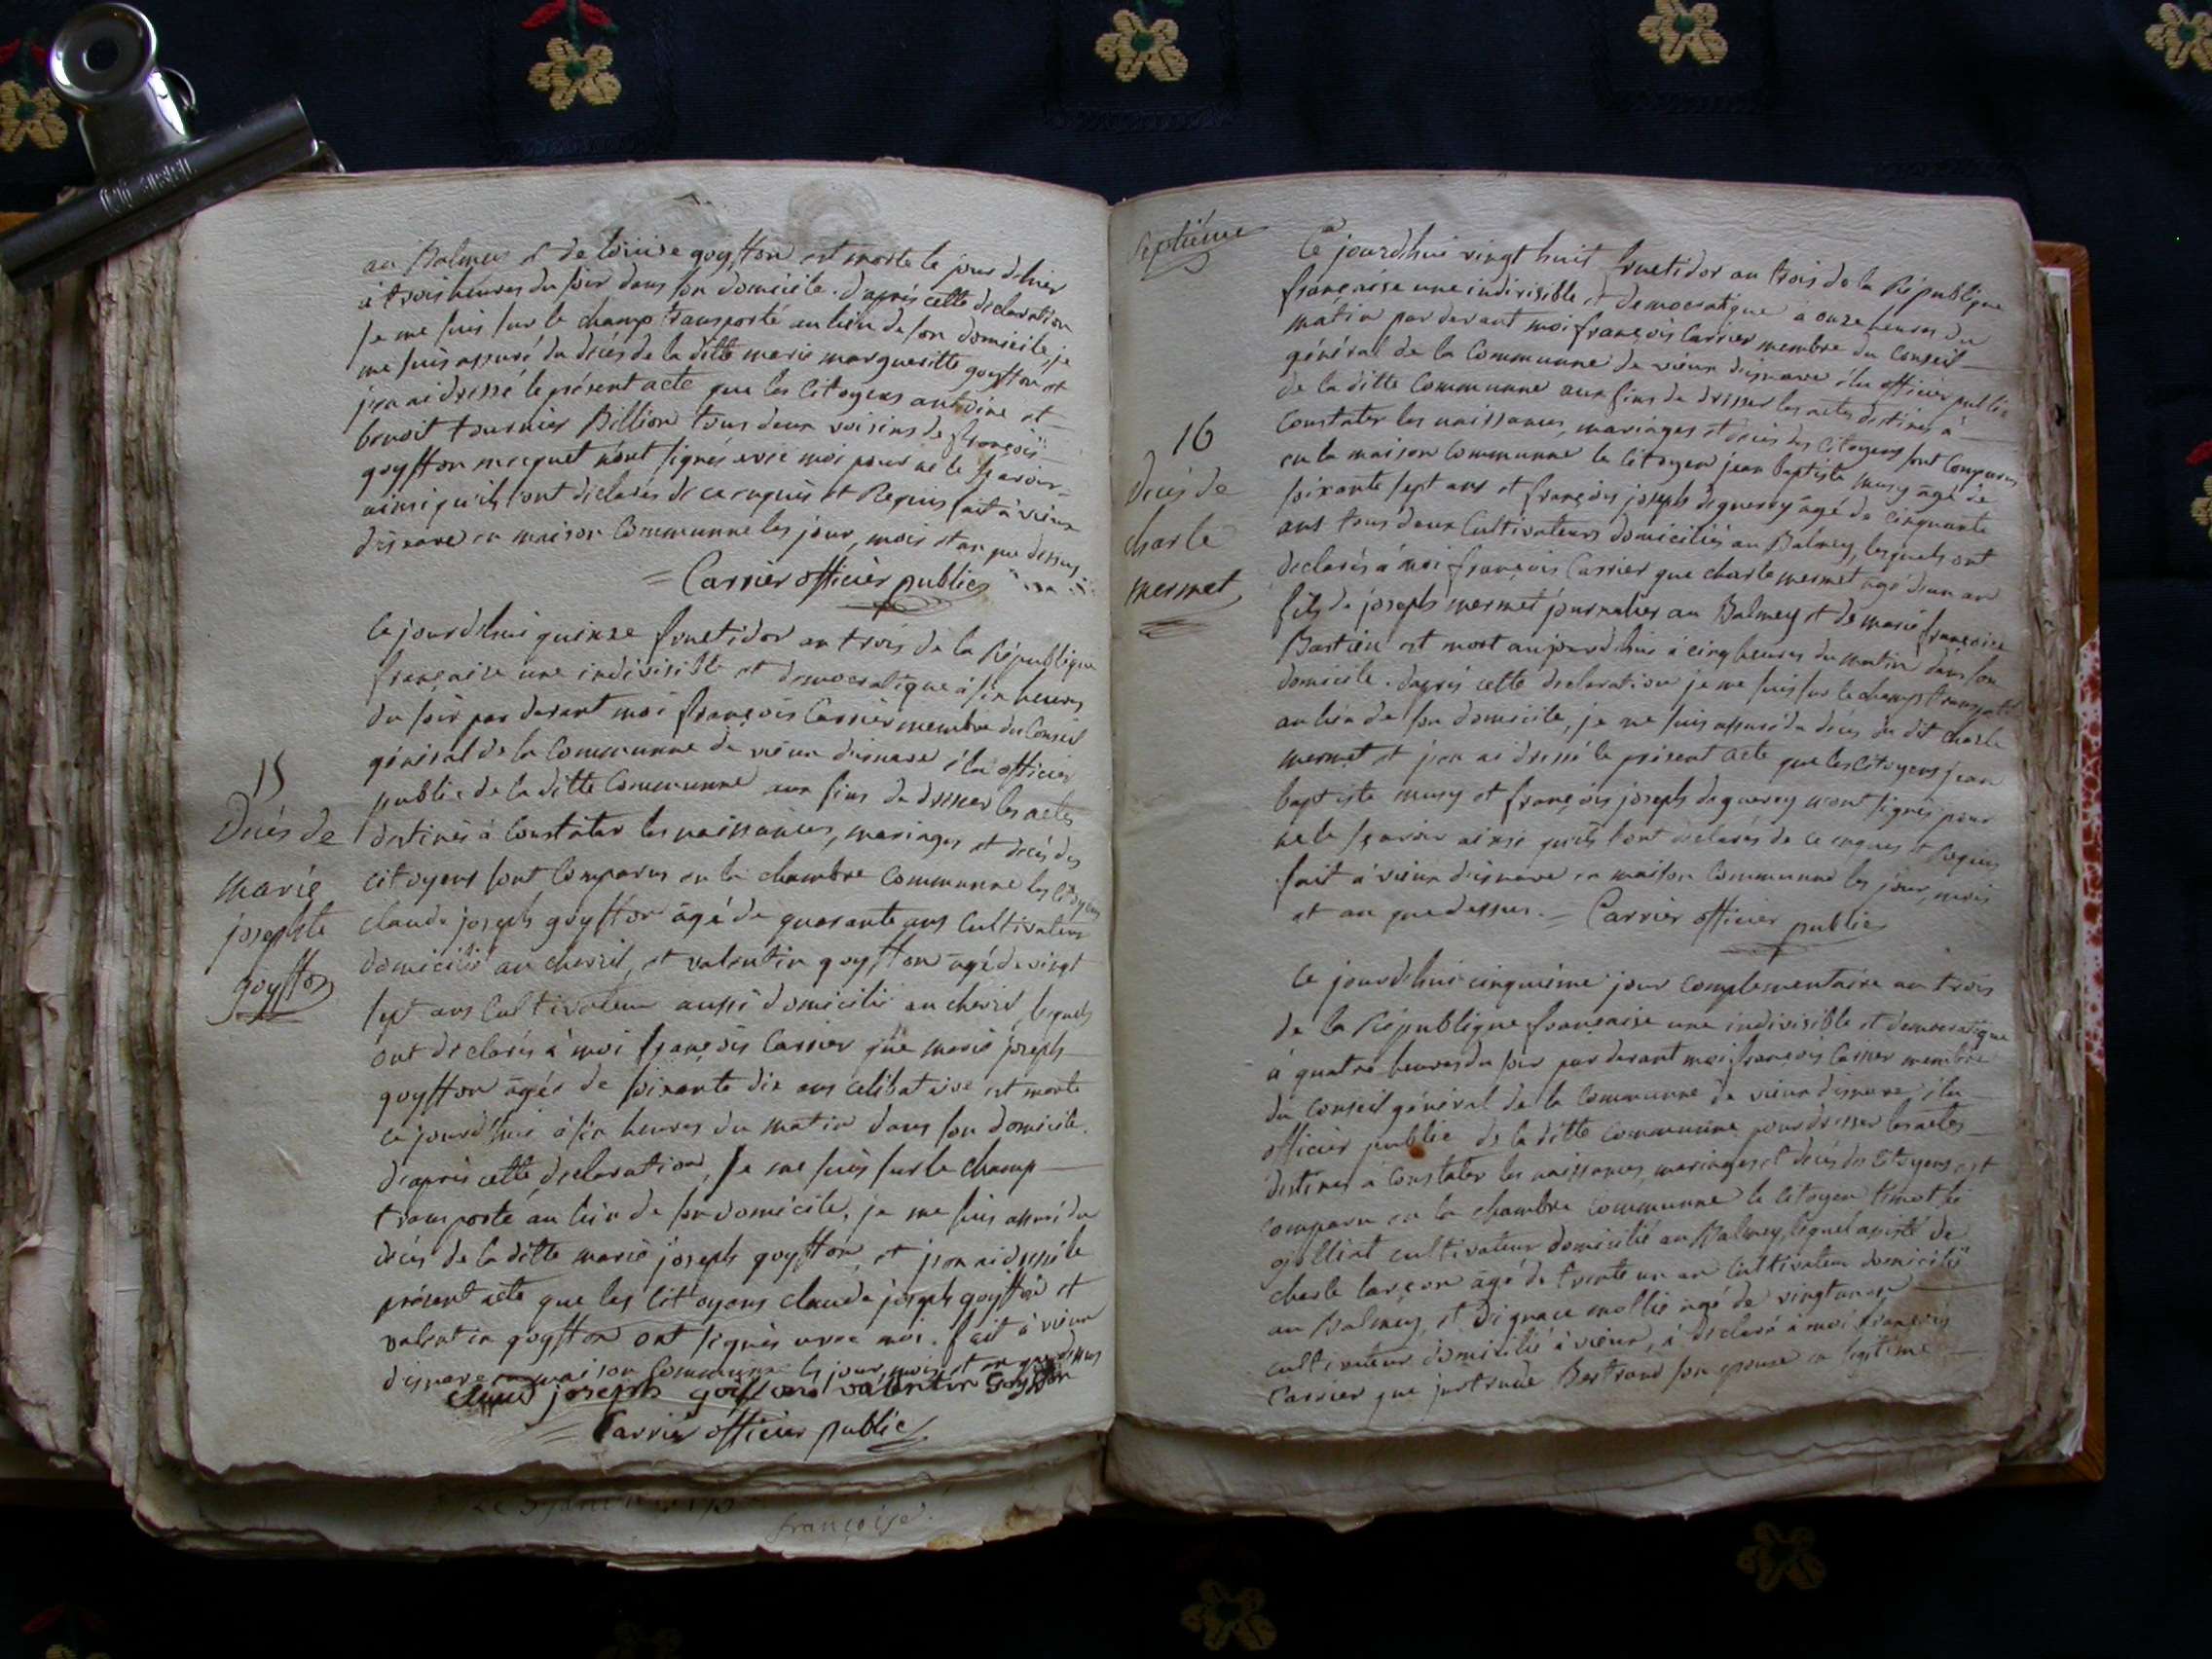 au Balmey et de Louise goyffon est morte le jour d'hier
à trois heures du soir dans son domicile. d'après cette declaration
je me suis sur le champ transporté au lieu de son domicile, je
me suis assuré du decès de la ditte marie margueritte goyffon et
j'en ai dressé le présent acte que les citoyens antoine et
benoit tournier Billion tous deux voisins de françois
goyffon moquet n'ont signés avec moi pour ne le sçavoir
ainsi qu'ils l'ont déclarés de ce enquis et Requis fait à vieux
disnave en maison Communne les jour, mois et an que dessus
= Carrier officier public
15
Decès de
marie
josephte
goyffon
Ce jourd'hui quinze fructidor an trois de la République
française une indivisible et democratique à six heures
du soir par devant moi françois Carrier membre du Conseil
général de la Communne de vieux disnave élu officier
public de la ditte Communne aux fins de dresser les actes
destinés à Constater les naissances, mariages et decès des
citoyens sont Comparus en la chambre Communne les citoyens
claude joseph goyffon âgé de quarante ans Cultivateur
domicilié au chevril, et valentin goyffon agé de vingt
sept ans Cultivateur aussi domicilié au chevril lesquels
ont declarés à moi françois Carrier que marie joseph
goyffon âgée de soixante dix ans célibataire est morte
ce jourd'hui à six heures du matin dans son domicile.
d'après cette declaration, Je me suis sur le champ
transporté au lieu de son domicile, je me suis assuré du
decès de la ditte marie joseph goyffon, et j'en ai dressé le
présent acte que les Citoyens claude joseph goyffon et
valentin goyffon ont signés avec moi. fait à vieux
disnave en maison Communne les jour, mois et an que dessus
claude joseph goiffon valentin Goyffon
= Carrier officier public
françoise
Septième
16
Decès de
charle
mermet
Ce jourd'hui vingt huit fructidor an trois de la République
française une indivisible et democratique à onze heures du
matin par devant moi françois Carrier membre du Conseil
général de la Communne de vieux disnave élu officier public
de la ditte Communne aux fins de dresser les actes destinés à
Constater les naissances, mariages et decès des Citoyens sont Comparus
en la maison Communne le Citoyen jean baptiste musy âgé de
soixante sept ans et françois joseph deguerry âgé de cinquante
ans tous deux Cultivateurs domiciliés au Balmey, lesquels ont
declarés à moi françois Carrier que charle mermet agé d'un an
fils de joseph mermet journalier au Balmey et de marie françoise
Bastien est mort aujourd'hui à cinq heures du matin dans son
domicile. d'après cette declaration je me suis sur le champ transporté
au lieu de son domicile, je me suis assuré du decès du dit charle
mermet et j'en ai dressé le présent acte que les Citoyens jean
baptiste musy et françois joseph deguerry n'ont signés pour
ne le sçavoir ainsi qu'ils l'ont declarés de ce enquis et requis
fait à vieux disnave en maison Communne les jour, mois
et an que dessus. = Carrier officier public
Ce jourd'hui cinquième jour complementaire an trois
de la République française une indivisible et democratique
à quatre heures du soir par devant moi françois Carrier membre
du Conseil général de la Communne de vieux disnave, élu
officier public de la ditte communne pour dresser les actes
destinés à Constater les naissances, mariages et decès des Citoyens est
comparu en la chambre Communne le Citoyen
golliat cultivateur domicilié au Balmey, lequel assisté de
charle larçon âgé de trente un an Cultivateur domicilié
au Balmey, et Dignace mollie âgé de vingt
cultivateur domicilié à vieux, à declaré à moi françois
Carrier que justrude Bertrand son epouse en légitime